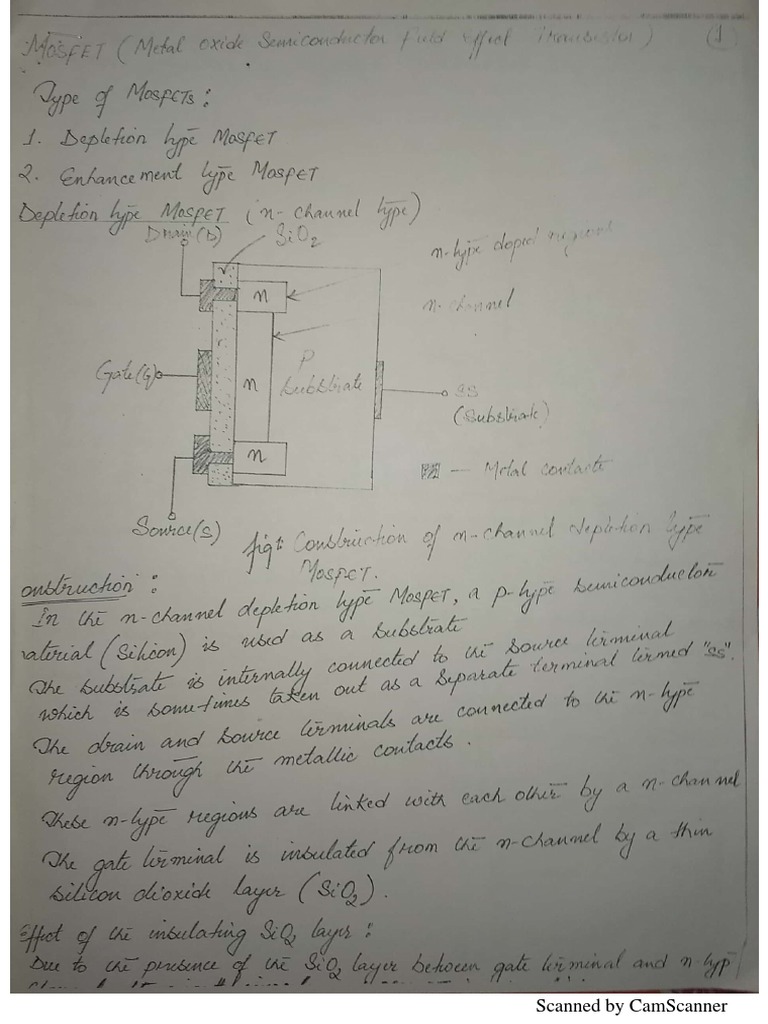 MOSFET (Metal oxide Semiconductor Field Effect Transistor) (1)
Type of MOSFETs :
1. Depletion type MOSFET
2. Enhancement type MOSFET
Depletion type MOSFET (n-channel type)
Drain(D)
SiO2
n-type doped regions
n
n-channel
P
substrate
Gate(G)
n
SS
(Substrate)
n
— Metal contacts
Source(S)
fig1: Construction of n-channel depletion type
MOSFET.
onstruction :
In the n-channel depletion type MOSFET, a p-type semiconductor
aterial (Silicon) is used as a substrate
The substrate is internally connected to the source terminal
which is some-times taken out as a separate terminal termed "SS".
The drain and source terminals are connected to the n-type
region through the metallic contacts.
These n-type regions are linked with each other by a n-channel
The gate terminal is insulated from the n-channel by a thin
silicon dioxide layer (SiO2).
Effect of the insulating SiO2 layer :
Due to the presence of the SiO2 layer between gate terminal and n-typ
Scanned by CamScanner